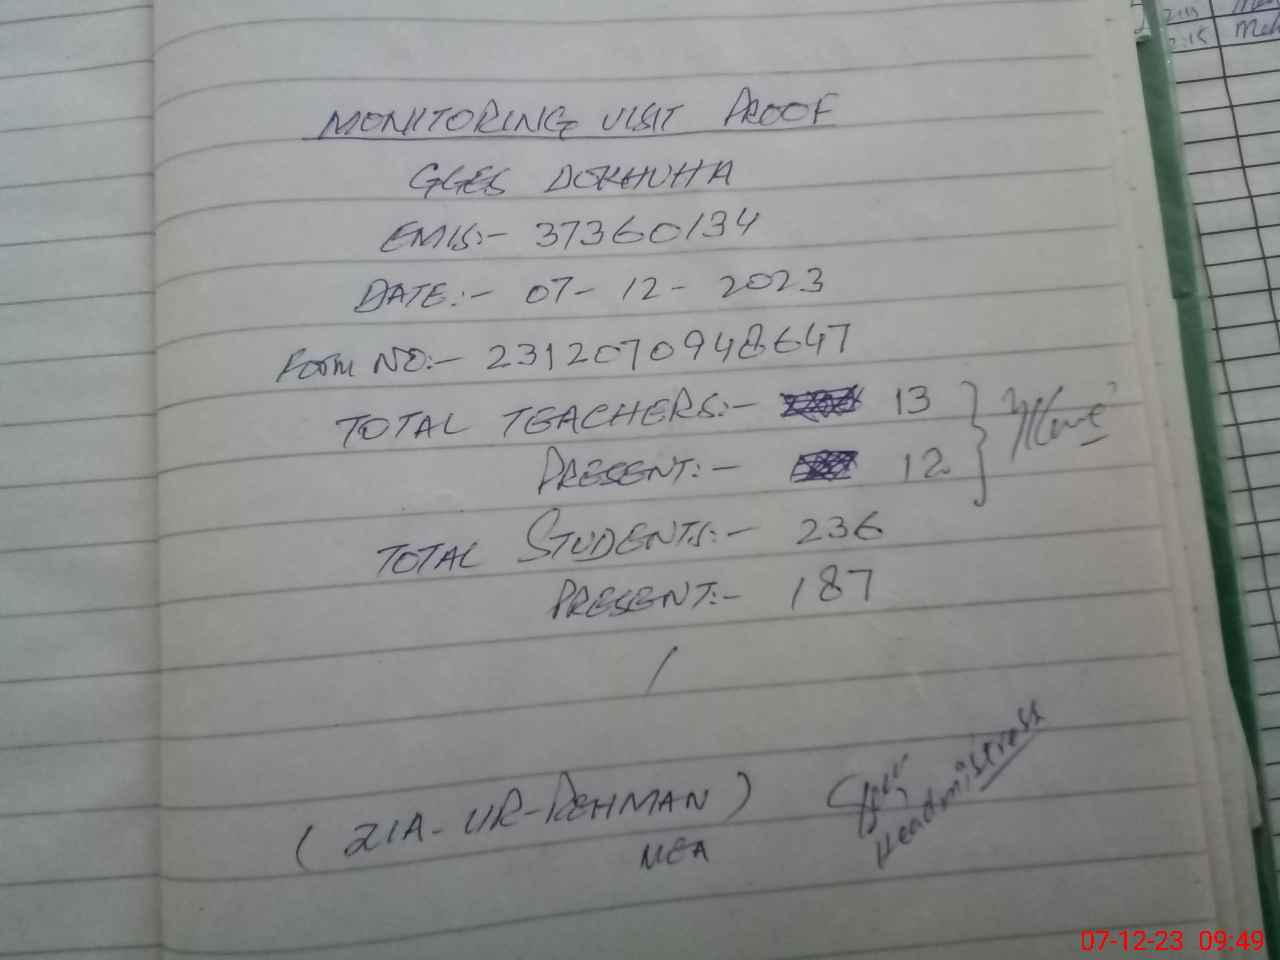 MONITORING VISIT PROOF
GGES DOKHUHA
EMIS:- 37360134
DATE:- 07-12-2023
FORM NO:- 2312070948647
TOTAL TEACHERS:- 13
PRESENT:- 12
TOTAL STUDENTS:- 236
PRESENT:- 187
(ZIA-UR-REHMAN)
MEA
Headmistress
07-12-23 09:49